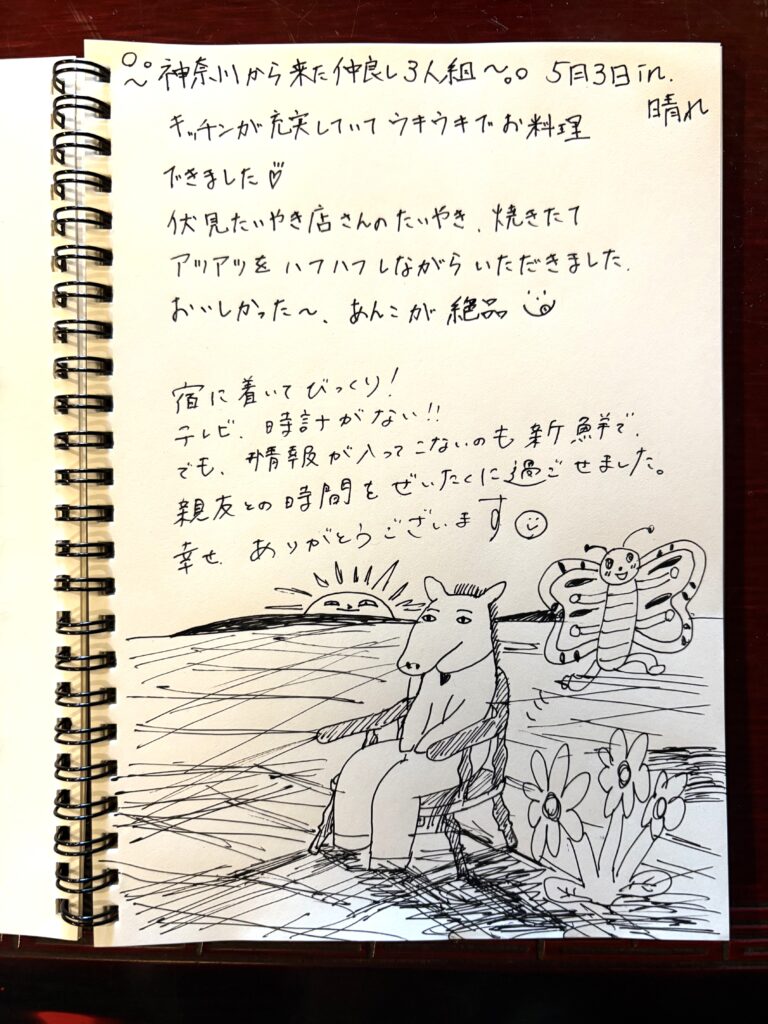 神奈川から来た仲良し3人組〜 5月3日in.
晴れ
キッチンが充実していてウキウキでお料理
できました♡
伏見たいやき店さんのたいやき、焼きたて
アツアツをハフハフしながらいただきました.
おいしかった〜、あんこが絶品
宿に着いてびっくり!
テレビ、時計がない!!
でも、情報が入ってこないのも新鮮で、
親友との時間をぜいたくに過ごせました。
幸せ ありがとうございます